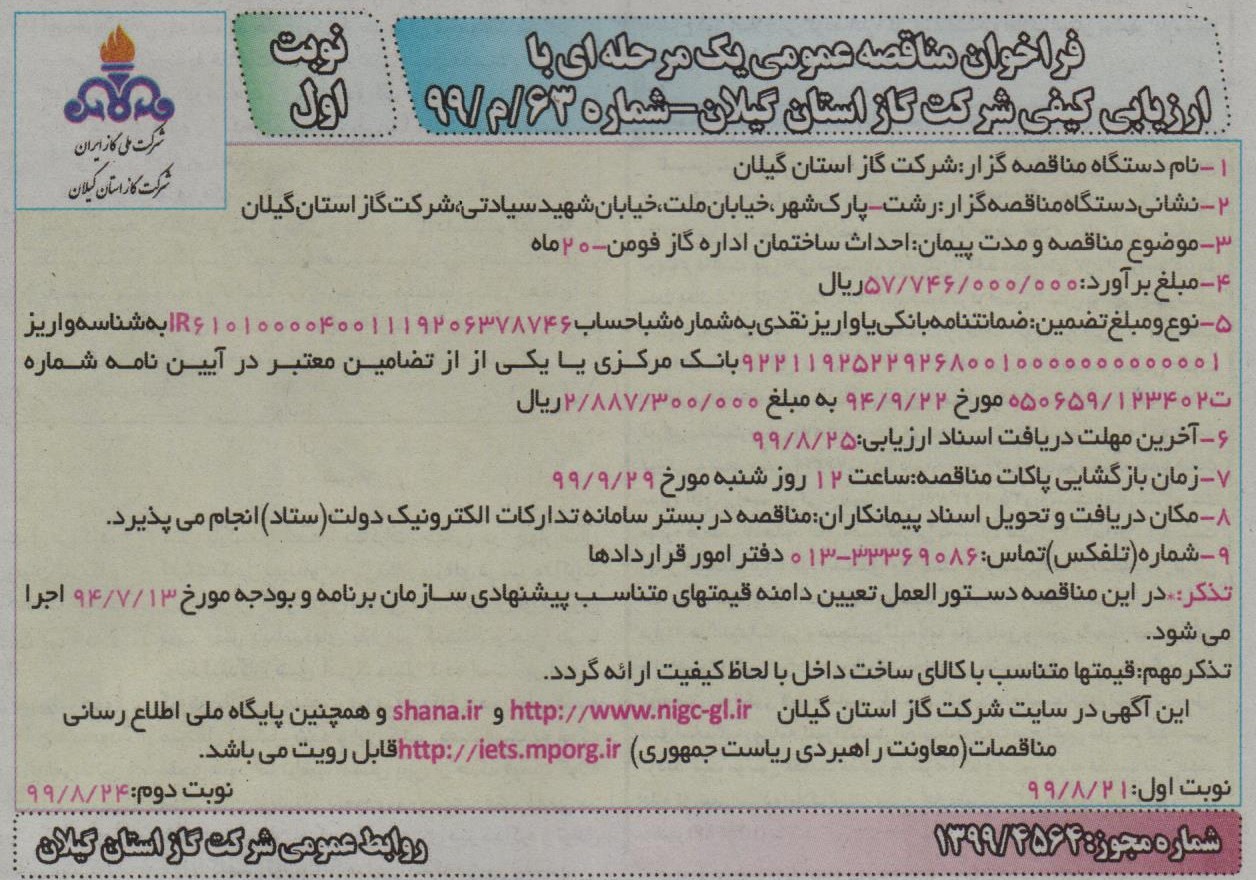 فراخوان مناقصه عمومی یک مرحله ای با
ارزیابی کیفی شرکت گاز استان گیلان-شماره ۶۳/م/۹۹
نوبت
اول
شرکت ملی گاز ایران
شرکت گاز استان گیلان
۱-نام دستگاه مناقصه گزار:شرکت گاز استان گیلان
۲-نشانی دستگاه مناقصه گزار:رشت-پارک شهر،خیابان ملت،خیابان شهید سیادتی،شرکت گاز استان گیلان
۳-موضوع مناقصه و مدت پیمان:احداث ساختمان اداره گاز فومن-۲۰ماه
۴-مبلغ برآورد:۵۷/۷۴۶/۰۰۰/۰۰۰ریال
۵-نوع ومبلغ تضمین:ضمانتنامه بانکی یا واریز نقدی به شماره شبا حساب IR۶۱۰۱۰۰۰۰۴۰۰۱۱۱۹۲۰۶۳۷۸۷۴۶به شناسه واریز
۹۲۲۱۱۹۲۵۲۲۹۲۶۸۰۰۱۰۰۰۰۰۰۰۰۰۰۰۰۱بانک مرکزی یا یکی از از تضامین معتبر در آیین نامه شماره
۱۲۳۴۰۲/ت۵۰۶۵۹ه مورخ ۹۴/۹/۲۲ به مبلغ ۲/۸۸۷/۳۰۰/۰۰۰ریال
۶-آخرین مهلت دریافت اسناد ارزیابی:۹۹/۸/۲۵
۷-زمان بازگشایی پاکات مناقصه:ساعت ۱۲ روز شنبه مورخ ۹۹/۹/۲۹
۸-مکان دریافت و تحویل اسناد پیمانکاران:مناقصه در بستر سامانه تدارکات الکترونیک دولت(ستاد)انجام می پذیرد.
۹-شماره(تلفکس)تماس:۳۳۳۶۹۰۸۶-۰۱۳ دفتر امور قراردادها
تذکر:*در این مناقصه دستورالعمل تعیین دامنه قیمتهای متناسب پیشنهادی سازمان برنامه و بودجه مورخ ۹۴/۷/۱۳ اجرا
می شود.
تذکر مهم:قیمتها متناسب با کالای ساخت داخل با لحاظ کیفیت ارائه گردد.
این آگهی در سایت شرکت گاز استان گیلان http://www.nigc-gl.ir و shana.ir و همچنین پایگاه ملی اطلاع رسانی
مناقصات(معاونت راهبردی ریاست جمهوری) http://iets.mporg.irقابل رویت می باشد.
نوبت اول:۹۹/۸/۲۱
نوبت دوم:۹۹/۸/۲۴
شماره مجوز:۱۳۹۹/۴۵۶۴
روابط عمومی شرکت گاز استان گیلان